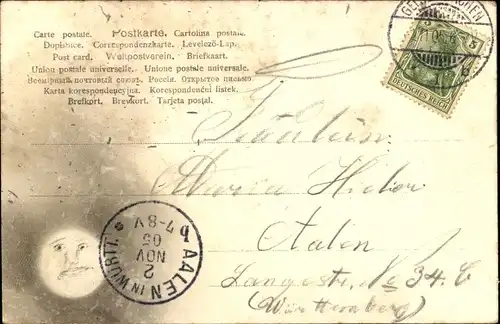 Carte postale. Postkarte. Cartolina postale.
Dopisnice. Correspondenzkarte. Levelező-Lap.
Post card. Weltpostverein. Briefkaart.
Union postale universelle. Unione postale universale.
Всемірный почтовый союзъ. Россія. Открытое письмо.
Karta korespondencyjna. Korespondenční listek.
Brefkort. Brevkort. Tarjeta postal.
5
DEUTSCHES REICH
Fräulein
Maria Hieber
Aalen
Langestr. No 34. C
(Württemberg)
AALEN IN WÜRTT.
2
NOV
05
7-8V